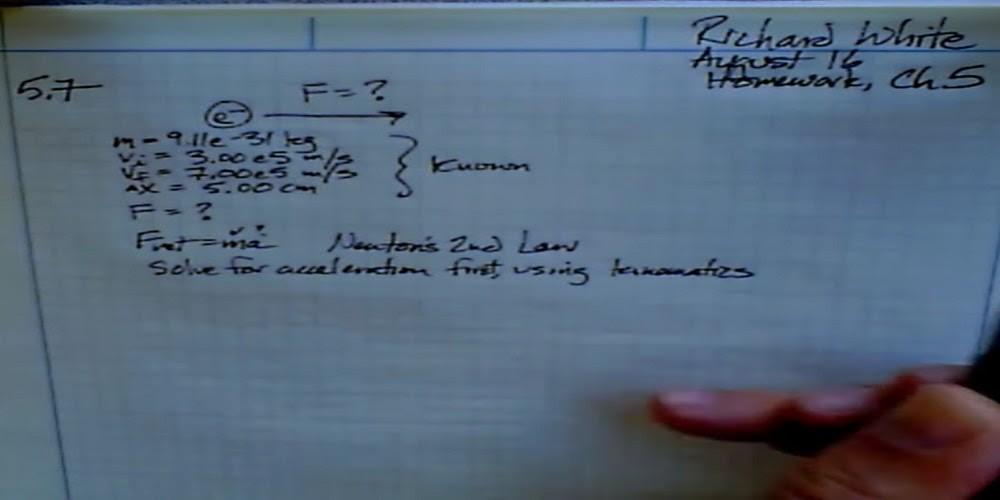 Richard White
August 16
Homework, Ch.5
5.7
F = ?
e-
m = 9.11e-31 kg
vi = 3.00e5 m/s
vf = 7.00e5 m/s
Δx = 5.00 cm
} Known
F = ?
Fnet = ma Newton's 2nd Law
Solve for acceleration first, using kinematics